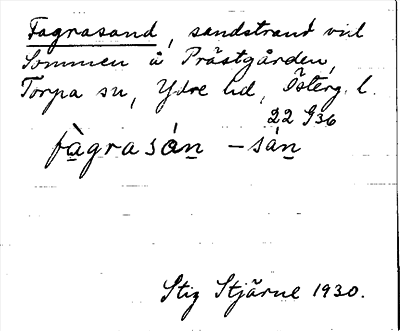 Fagrasand, sandstrand vid
Sommen å Prästgården,
Torpa sn, Ydre hd, Österg. l.
22 936
fàgrasán - sán
Stig Stjärne 1930.